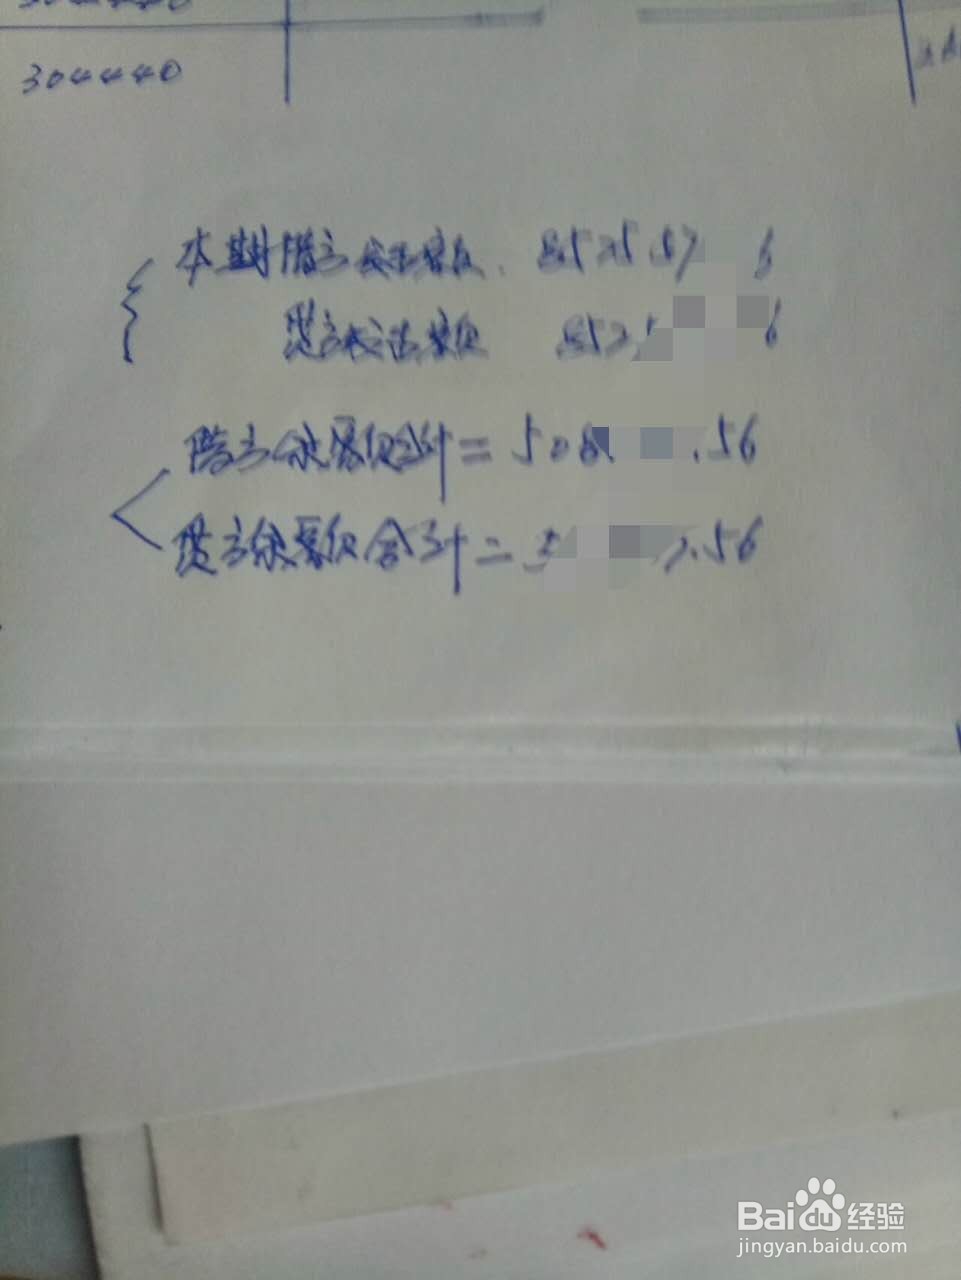 304440
本期借方发生额 8525.57 6
贷方发生额 852 6
借方余额合计=508 .56
贷方余额合计= .56
Baidu经验
jingyan.baidu.com